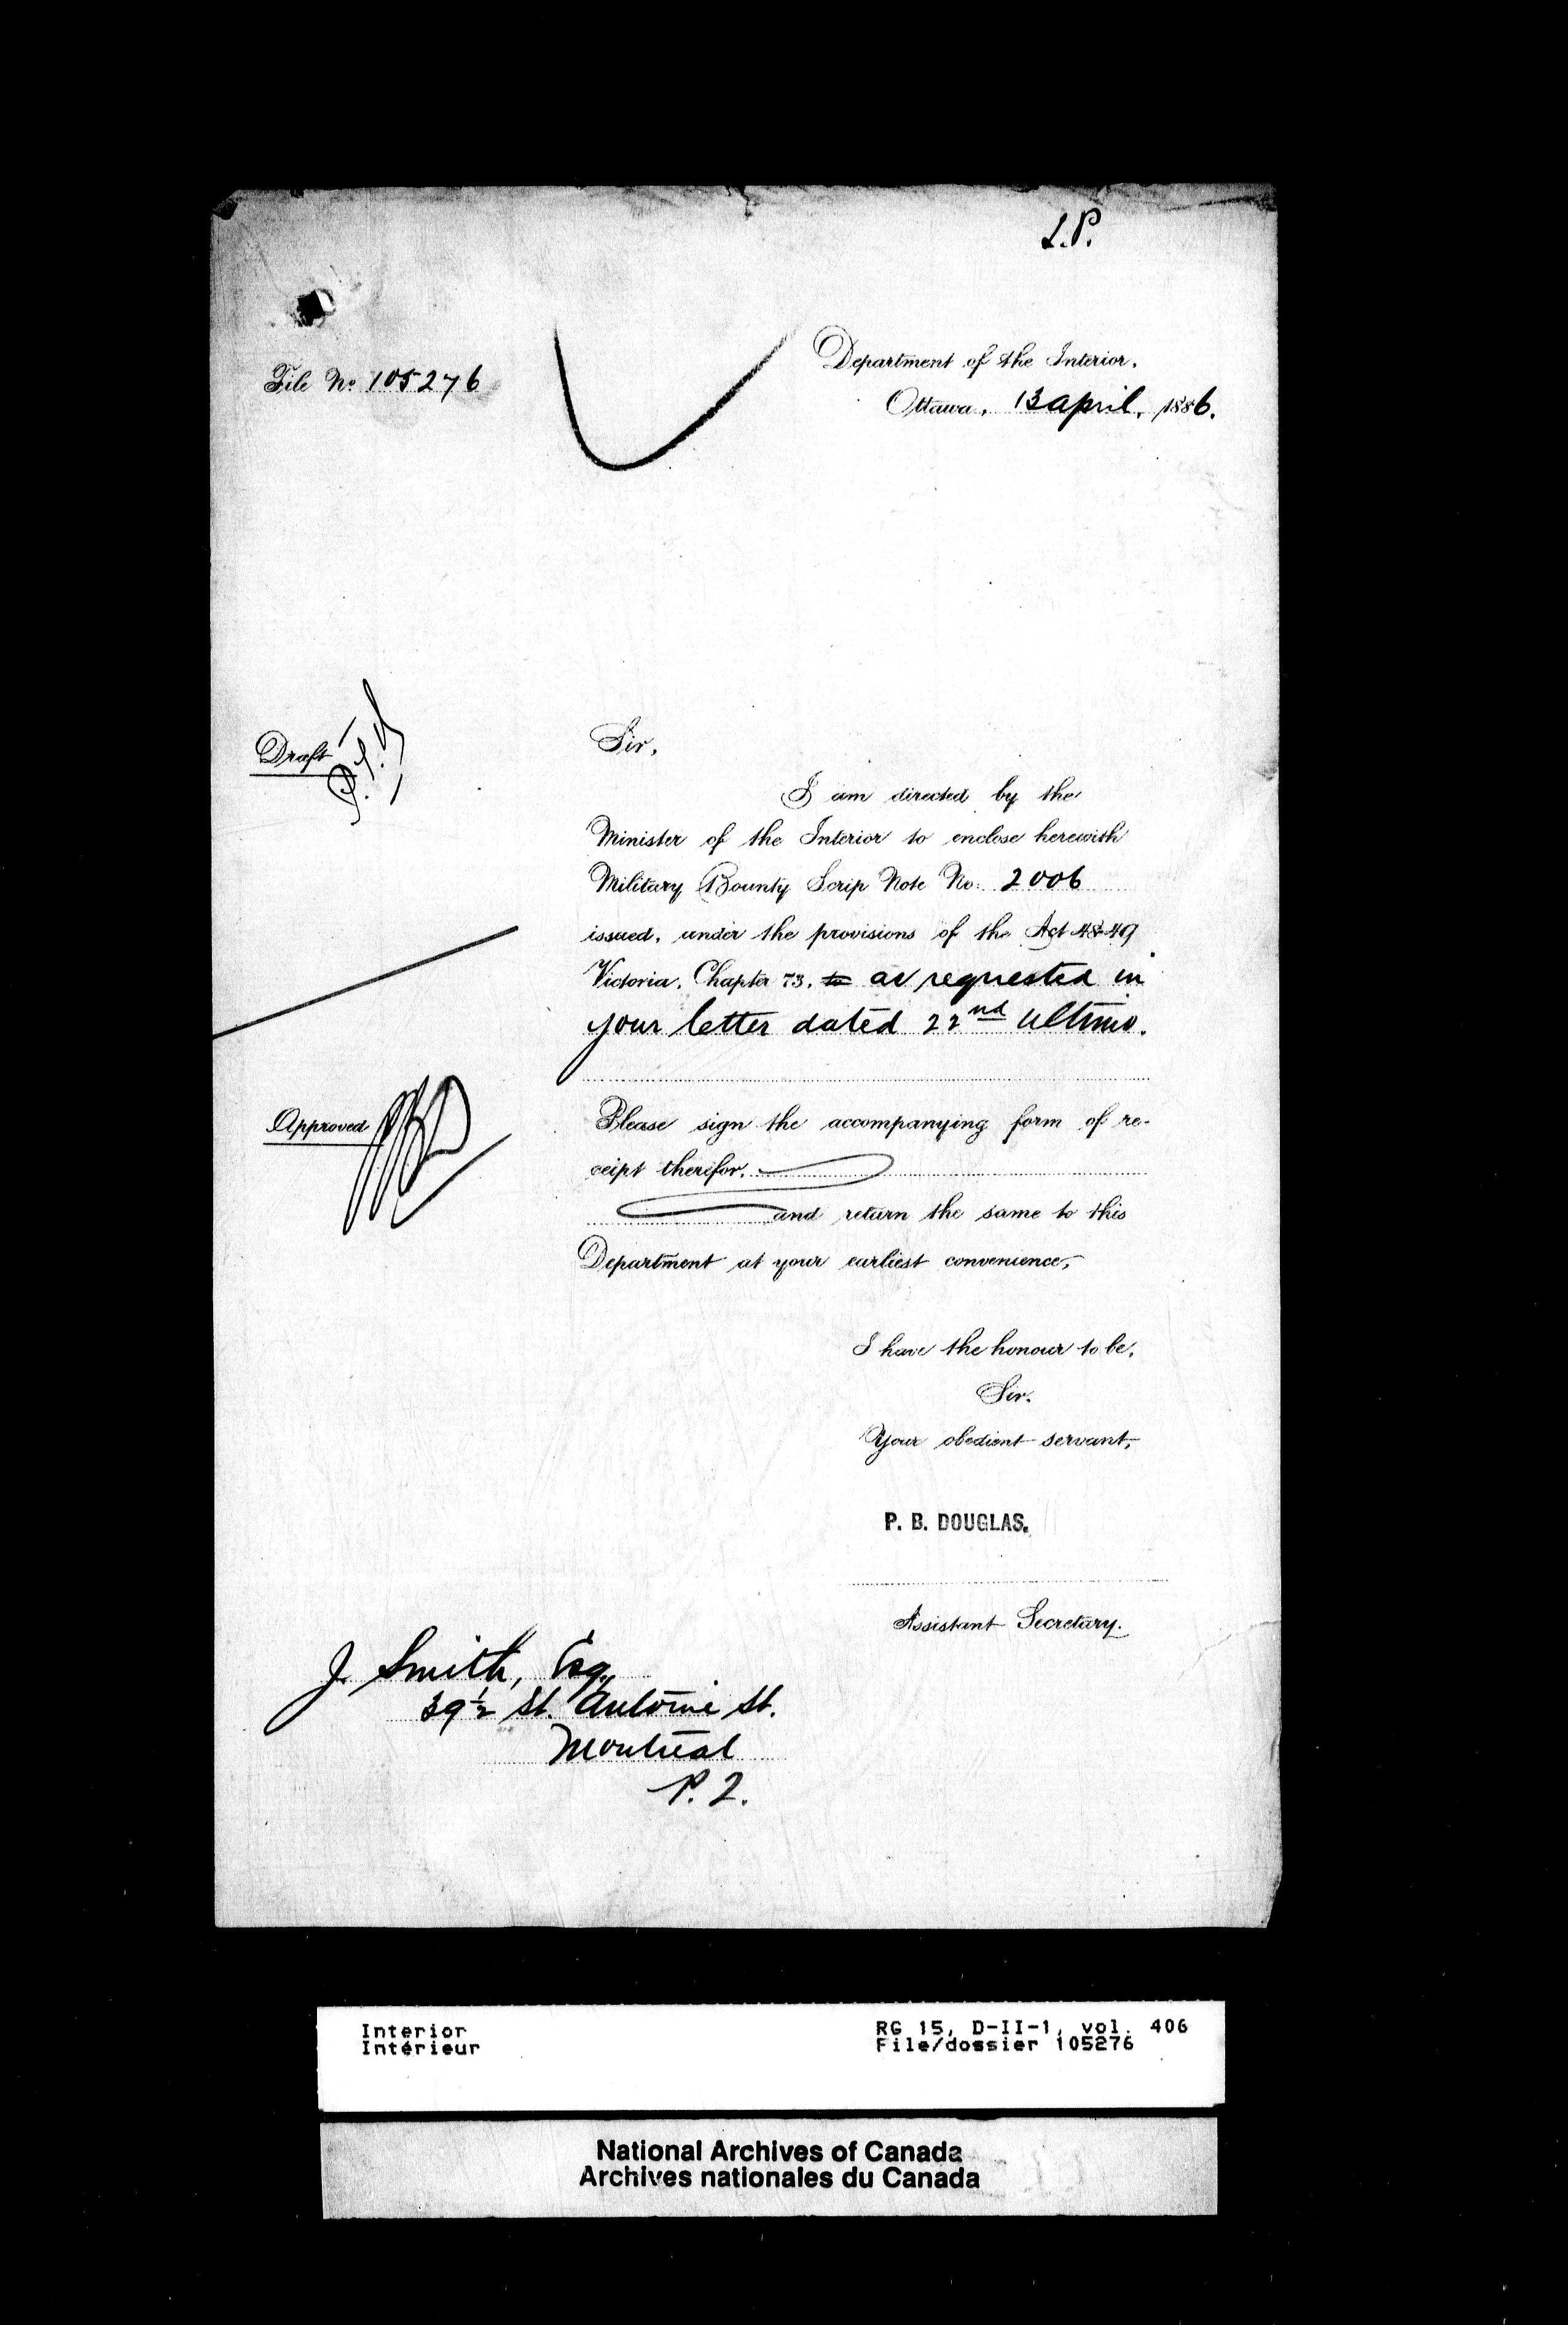 L.P.
File No. 105276
Department of the Interior,
Ottawa, 13 April, 1886.
Draft
Sir,
I am directed by the
Minister of the Interior to enclose herewith
Military Bounty Scrip Note No. 2006
issued, under the provisions of the Act 48-49
Victoria, Chapter 73, to as requested in
your letter dated 22nd ultimo.
Approved
Please sign the accompanying form of re-
ceipt therefor,
and return the same to this
Department at your earliest convenience,
I have the honour to be,
Sir,
Your obedient servant,
P. B. DOUGLAS.
Assistant Secretary.
J. Smith, Esq,
39½ St. Antoine St.
Montreal
P. Q.
Interior
Intérieur
RG 15, D-II-1, vol. 406
File/dossier 105276
National Archives of Canada
Archives nationales du Canada